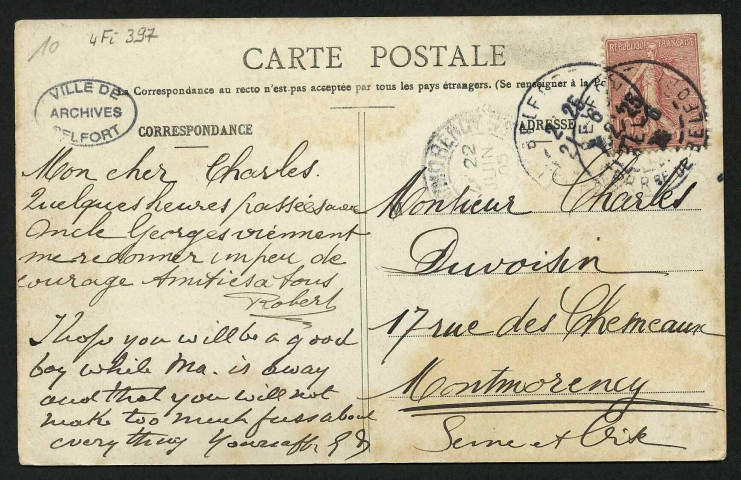 10
4Fi 397
CARTE POSTALE
La Correspondance au recto n'est pas acceptée par tous les pays étrangers. (Se renseigner à la
VILLE DE
ARCHIVES
BELFORT
CORRESPONDANCE
ADRESSE
RÉPUBLIQUE FRANÇAISE
22
JUIN
BELFORT
Mon cher Charles.
Quelques heures passées avec
Oncle Georges viennent
me redonner un peu de
courage Amitiés à tous
Robert
I hope you will be a good
boy while Ma. is away
and that you will not
make too much fuss about
everything Yours aff
Monsieur Charles
Duvoisin
17 rue des Chesneaux
Montmorency
Seine et Oise